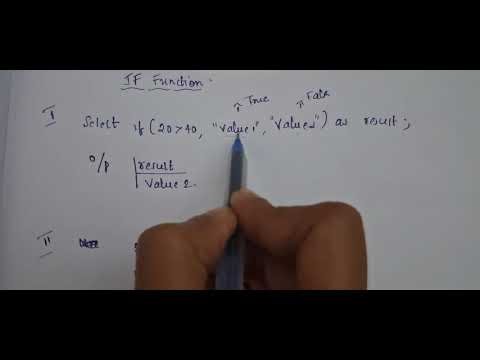 IF Function.
True False
I Select if (20>40, "value1", "value2") as result;
O/p result
Value 2.
II